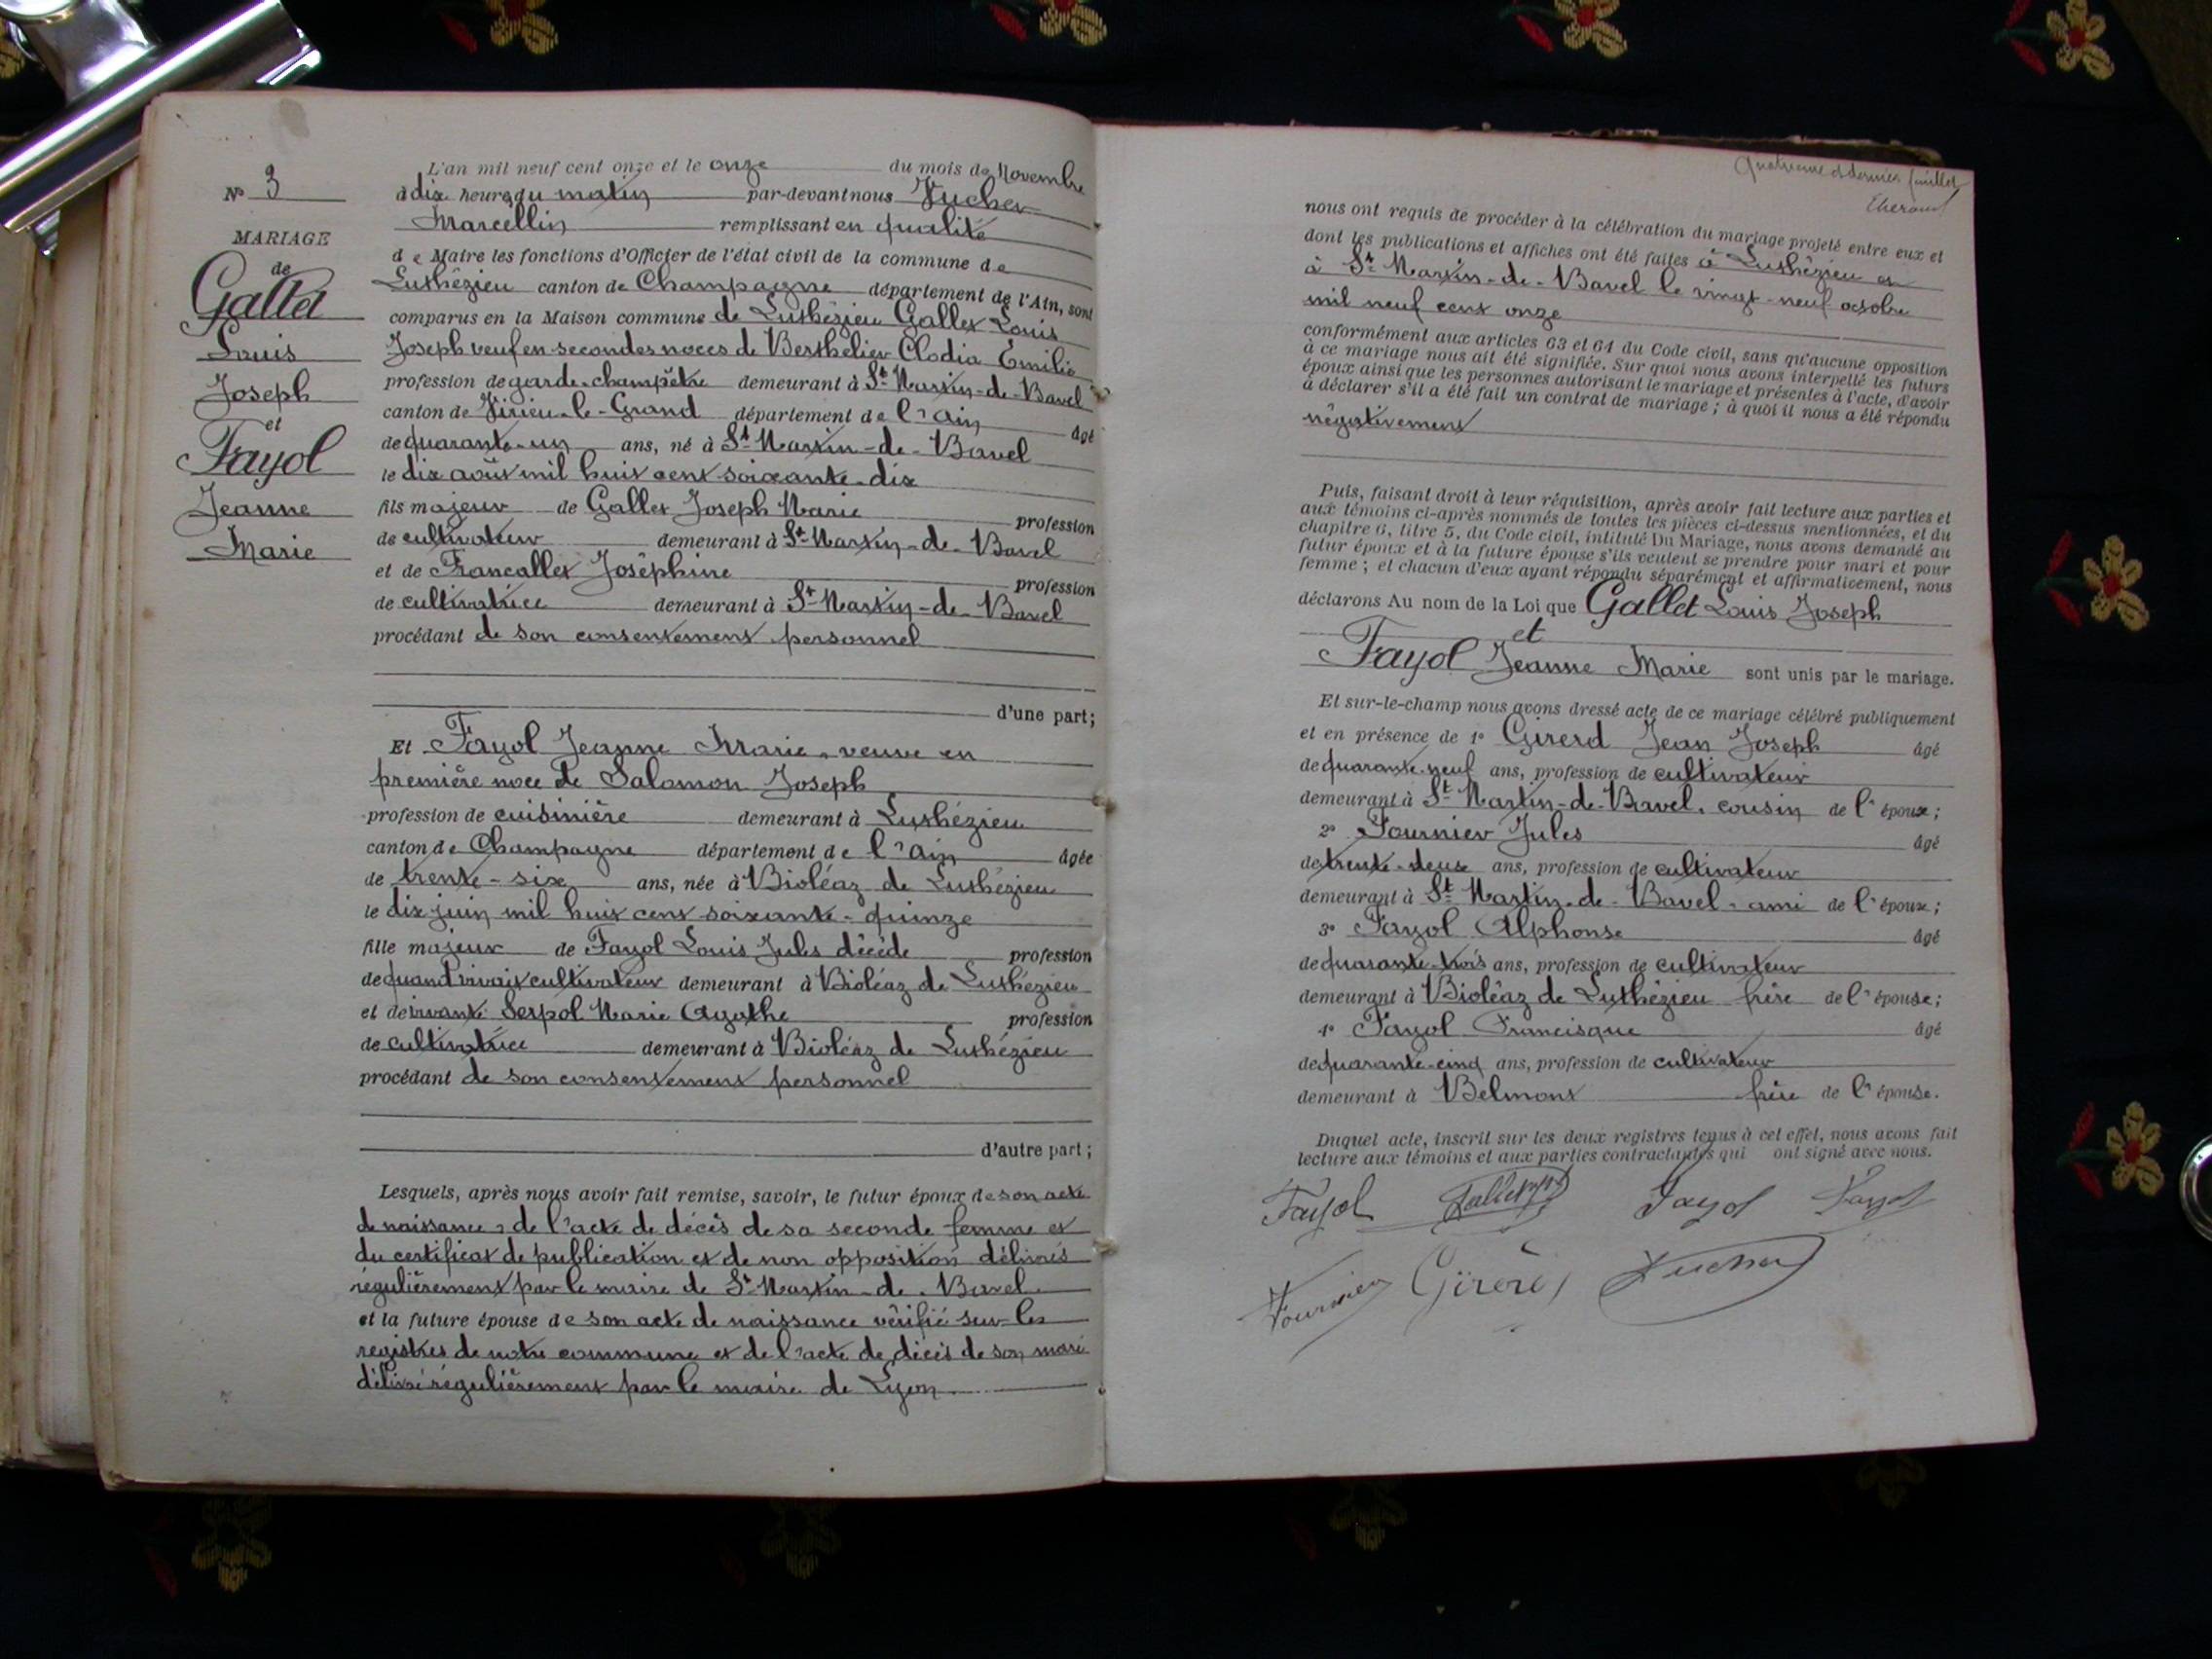 N° 3
MARIAGE
de
Gallet
Louis
Joseph
et
Fayol
Jeanne
Marie
L'an mil neuf cent onze et le onze du mois de Novembre
à dix heures du matin par-devant nous Jucher
Marcellin remplissant en qualité
de Maire les fonctions d'Officier de l'état civil de la commune de
Luthézieu canton de Champagne département de l'Ain, sont
comparus en la Maison commune de Luthézieu Gallet Louis
Joseph veuf en secondes noces de Berthelier Clodia Emilie
profession de garde-champêtre demeurant à St Martin-de-Bavel
canton de Virieu-le-Grand département de l'Ain âgé
de quarante-un ans, né à St Martin-de-Bavel
le dix août mil huit cent soixante-dix
fils majeur de Gallet Joseph Marie profession
de cultivateur demeurant à St Martin-de-Bavel
et de Francallet Joséphine profession
de cultivatrice demeurant à St Martin-de-Bavel
procédant de son consentement personnel
d'une part;
Et Fayol Jeanne Marie, veuve en
première noce de Salomon Joseph
profession de cuisinière demeurant à Luthézieu
canton de Champagne département de l'Ain âgée
de trente-six ans, née à Bioléaz de Luthézieu
le dix juin mil huit cent soixante-quinze
fille majeur de Fayol Louis Jules décédé profession
de quand vivait cultivateur demeurant à Bioléaz de Luthézieu
et de vivante Serpol Marie Agathe profession
de cultivatrice demeurant à Bioléaz de Luthézieu
procédant de son consentement personnel
d'autre part;
Lesquels, après nous avoir fait remise, savoir, le futur époux de son acte
de naissance, de l'acte de décès de sa seconde femme et
du certificat de publication et de non opposition délivrés
régulièrement par le maire de St Martin-de-Bavel
et la future épouse de son acte de naissance vérifié sur les
registres de notre commune et de l'acte de décès de son mari
délivré régulièrement par le maire de Lyon
Quatrième et dernier feuillet
nous ont requis de procéder à la célébration du mariage projeté entre eux et
dont les publications et affiches ont été faites à Luthézieu et
à St Martin-de-Bavel le vingt-neuf octobre
mil neuf cent onze
conformément aux articles 63 et 64 du Code civil, sans qu'aucune opposition
à ce mariage nous ait été signifiée. Sur quoi nous avons interpellé les futurs
époux ainsi que les personnes autorisant le mariage et présentes à l'acte, d'avoir
à déclarer s'il a été fait un contrat de mariage; à quoi il nous a été répondu
négativement
Puis, faisant droit à leur réquisition, après avoir fait lecture aux parties et
aux témoins ci-après nommés de toutes les pièces ci-dessus mentionnées, et du
chapitre 6, titre 5, du Code civil, intitulé Du Mariage, nous avons demandé au
futur époux et à la future épouse s'ils veulent se prendre pour mari et pour
femme; et chacun d'eux ayant répondu séparément et affirmativement, nous
déclarons Au nom de la Loi que Gallet Louis Joseph
et
Fayol Jeanne Marie sont unis par le mariage.
Et sur-le-champ nous avons dressé acte de ce mariage célébré publiquement
et en présence de 1° Girerd Jean Joseph âgé
de quarante-neuf ans, profession de cultivateur
demeurant à St Martin-de-Bavel, cousin de l'époux;
2° Fournier Jules âgé
de trente-deux ans, profession de cultivateur
demeurant à St Martin-de-Bavel, ami de l'époux;
3° Fayol Alphonse âgé
de quarante-trois ans, profession de cultivateur
demeurant à Bioléaz de Luthézieu frère de l'épouse;
4° Fayol Francisque âgé
de quarante-cinq ans, profession de cultivateur
demeurant à Belmont frère de l'épouse.
Duquel acte, inscrit sur les deux registres tenus à cet effet, nous avons fait
lecture aux témoins et aux parties contractantes qui ont signé avec nous.
Fayol Gallet Fayol Fayol
Fournier Girerd Jucher